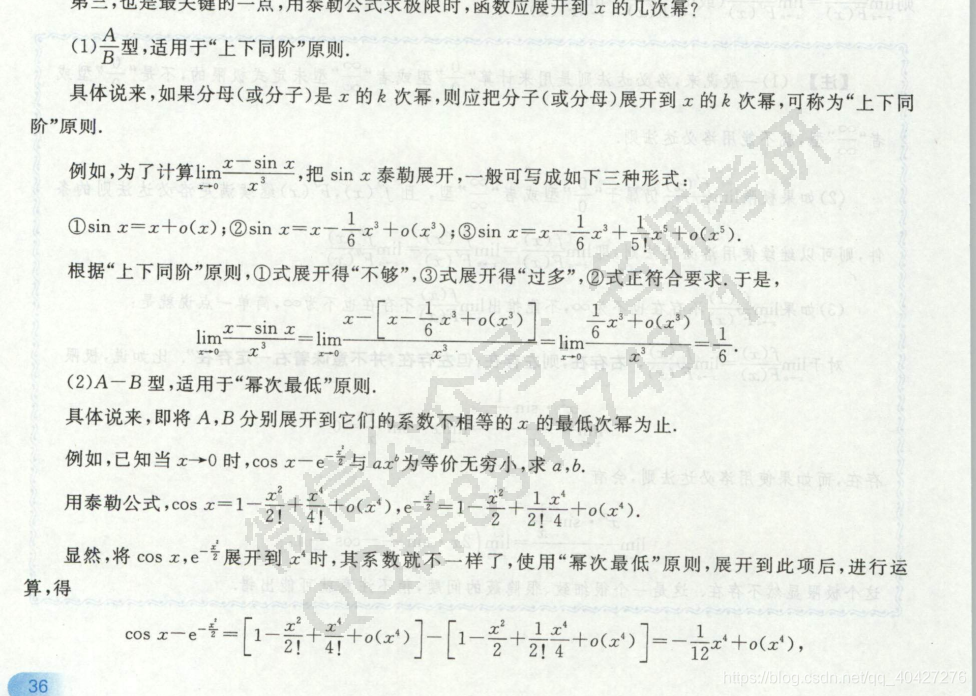 第三,也是最关键的一点,用泰勒公式求极限时,函数应展开到 x 的几次幂?
(1) A/B 型,适用于“上下同阶”原则.
具体说来,如果分母(或分子)是 x 的 k 次幂,则应把分子(或分母)展开到 x 的 k 次幂,可称为“上下同
阶”原则.
例如,为了计算 lim_{x→0} (x−sin x)/x³,把 sin x 泰勒展开,一般可写成如下三种形式:
①sin x=x+o(x);②sin x=x−(1/6)x³+o(x³);③sin x=x−(1/6)x³+(1/5!)x⁵+o(x⁵).
根据“上下同阶”原则,①式展开得“不够”,③式展开得“过多”,②式正符合要求.于是,
lim_{x→0} (x−sin x)/x³=lim_{x→0} (x−[x−(1/6)x³+o(x³)])/x³=lim_{x→0} ((1/6)x³+o(x³))/x³=1/6.
(2)A−B 型,适用于“幂次最低”原则.
具体说来,即将 A,B 分别展开到它们的系数不相等的 x 的最低次幂为止.
例如,已知当 x→0 时,cos x−e^{−x²/2} 与 ax^b 为等价无穷小,求 a,b.
用泰勒公式,cos x=1−x²/2!+x⁴/4!+o(x⁴),e^{−x²/2}=1−x²/2+(1/2!)(x⁴/4)+o(x⁴).
显然,将 cos x,e^{−x²/2} 展开到 x⁴ 时,其系数就不一样了,使用“幂次最低”原则,展开到此项后,进行运
算,得
cos x−e^{−x²/2}=[1−x²/2!+x⁴/4!+o(x⁴)]−[1−x²/2+(1/2!)(x⁴/4)+o(x⁴)]=−(1/12)x⁴+o(x⁴),
36
https://blog.csdn.net/qq_40427276